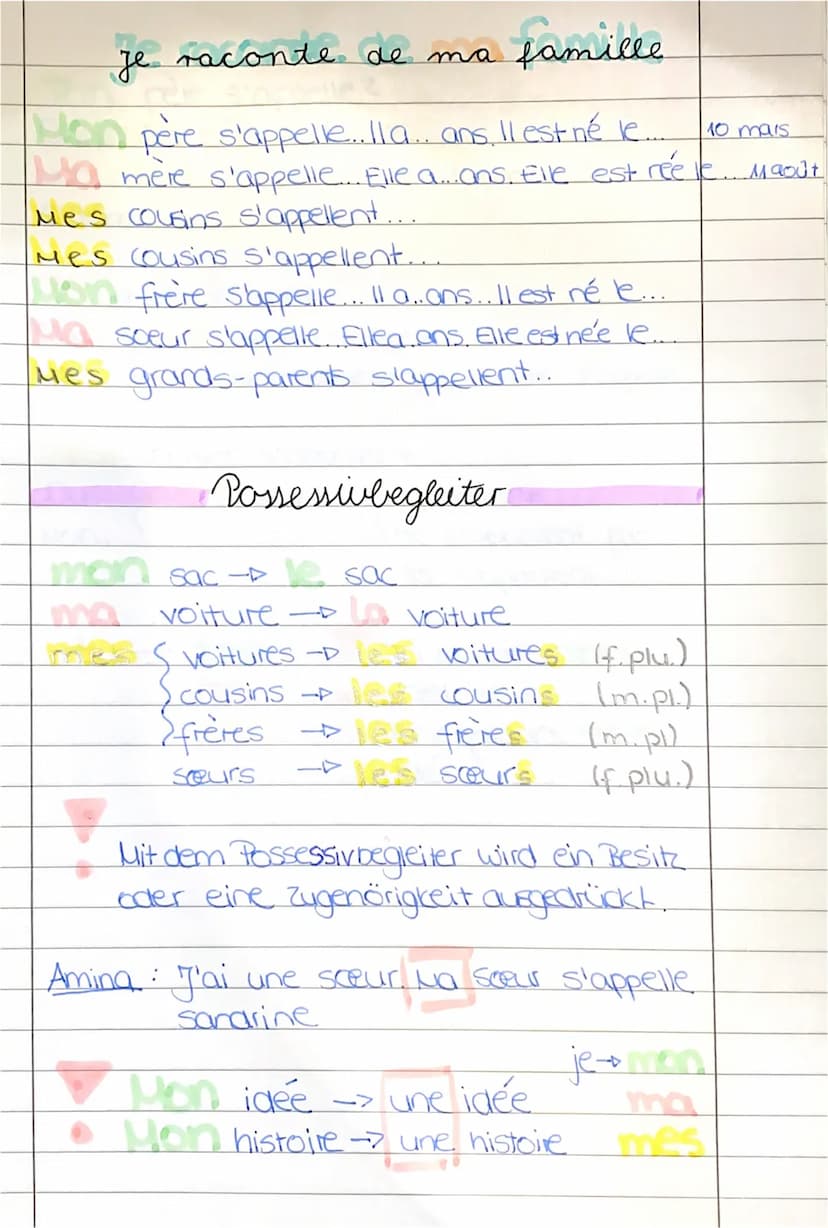 Je raconte de ma famille
Mon père s'appelle.. Il a.. ans. Il est né le... 10 mars
Ma mère s'appelle... Elle a...ans. Elle est née le... 11 août
Mes cousins s'appellent...
Mes cousins s'appellent...
Mon frère s'appelle... Il a..ans.. Il est né le...
Ma sœur s'appelle.. Elle a.ans. Elle est née le...
Mes grands-parents s'appellent..
Possessivbegleiter
mon sac → le sac
ma voiture → la voiture
mes { voitures → les voitures (f.plu.)
cousins → les cousins (m.pl.)
frères → les frères (m.pl)
sœurs → les sœurs (f.plu.)
! Mit dem Possessivbegleiter wird ein Besitz
oder eine Zugenörigkeit ausgedrückt.
Amina : J'ai une sœur. Ma sœur s'appelle
Sandrine
je → mon
! Mon idée --> une idée ma
Mon histoire --> une histoire mes